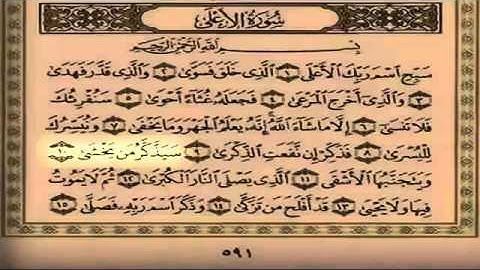 سُورَةُ الأَعْلَى
بِسْمِ اللَّهِ الرَّحْمَٰنِ الرَّحِيمِ
سَبِّحِ اسْمَ رَبِّكَ الْأَعْلَى ١ الَّذِي خَلَقَ فَسَوَّىٰ ٢ وَالَّذِي قَدَّرَ فَهَدَىٰ
٣ وَالَّذِي أَخْرَجَ الْمَرْعَىٰ ٤ فَجَعَلَهُ غُثَاءً أَحْوَىٰ ٥ سَنُقْرِئُكَ
فَلَا تَنسَىٰ ٦ إِلَّا مَا شَاءَ اللَّهُ إِنَّهُ يَعْلَمُ الْجَهْرَ وَمَا يَخْفَىٰ ٧ وَنُيَسِّرُكَ
لِلْيُسْرَىٰ ٨ فَذَكِّرْ إِن نَّفَعَتِ الذِّكْرَىٰ ٩ سَيَذَّكَّرُ مَن يَخْشَىٰ ١٠
وَيَتَجَنَّبُهَا الْأَشْقَى ١١ الَّذِي يَصْلَى النَّارَ الْكُبْرَىٰ ١٢ ثُمَّ لَا يَمُوتُ
فِيهَا وَلَا يَحْيَىٰ ١٣ قَدْ أَفْلَحَ مَن تَزَكَّىٰ ١٤ وَذَكَرَ اسْمَ رَبِّهِ فَصَلَّىٰ ١٥
٥٩١